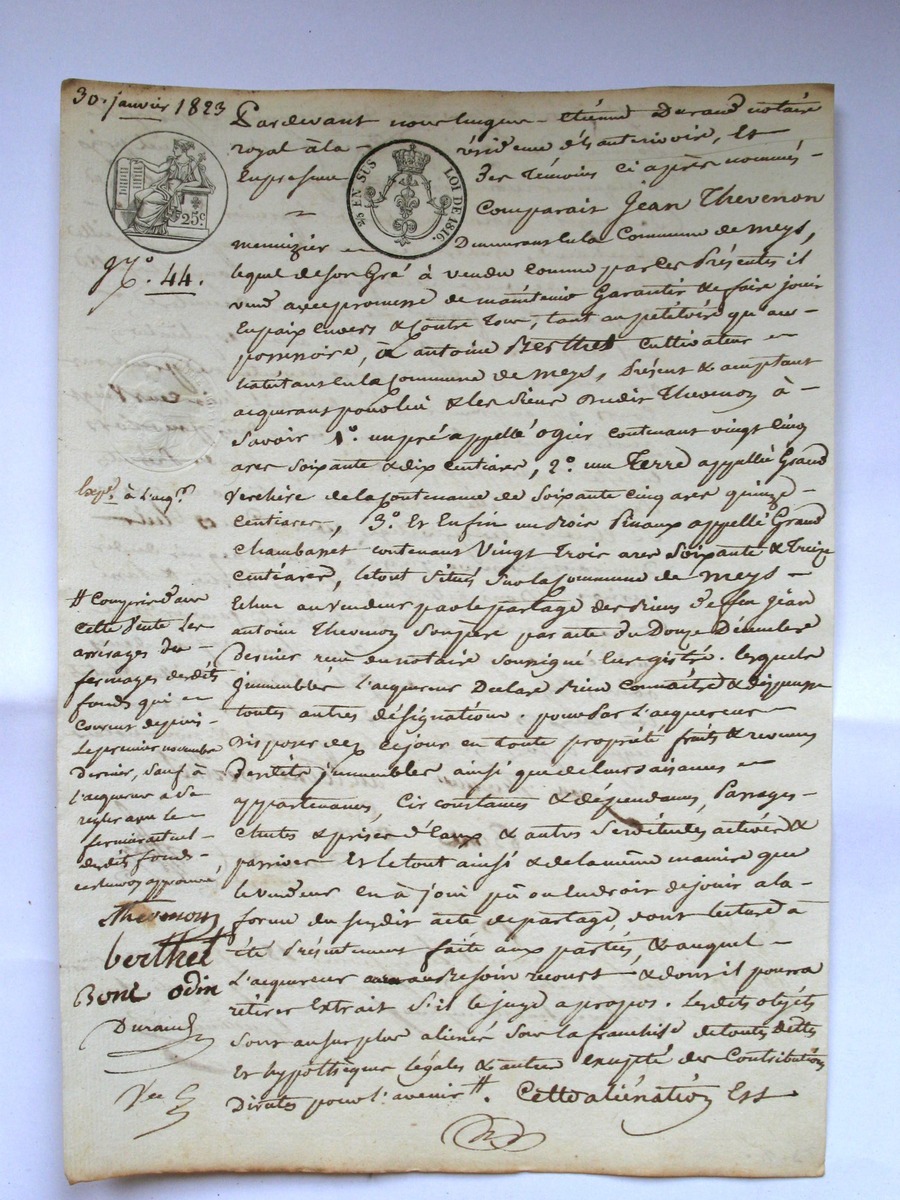 30. janvier 1823
Pardevant nous Etienne Durand notaire
royal à la résidence de St anterivoire, Et
En presence Des Témoins ci après nommés -
25c
¼ EN SUS LOI DE 1816.
Comparait Jean Thevenon
menuizier - Demeurant En la Commune de Meys,
N.o 44.
lequel de son Gré à vendu comme par Ces Présentes il
vend avec promesse de maintenir Garantir & de faire jouir
En paix Envers & Contre tous, tant au pétitoire qu'au -
possessoire, à antoine Berthet Cultivateur -
habitant En la Commune de Meys, Présent & acceptant
acquerant pour lui & les siens Dudit Thevenon à -
Savoir 1o. un pré appellé ogier contenant vingt cinq
ares soixante & dix centiares, 2o. une Terre appellée Grand
Verchère de la Contenance de Soixante cinq ares quinze -
Exp.on à l'acq.r
Centiares, 3o. Et Enfin un Bois Pinaux appellé Grand
Chambasset contenant Vingt Trois ares Soixante & Treize
Centiares, le tout situés sur la Commune de Meys -
Echue au vendeur par le partage des Biens De feu jean
antoine Thevenon Son père par acte du Douze Décembre
Dernier reçu du notaire soussigné Enregistré. lesquels
jmmeubles l'acquereur Declare Bien Connaitre & dispense
toutes autres désignations. pour Par l'acquereur -
Disposer dez ce jour en toute propriété fruits & revenus
Desdits jmmeubles ainsi que de leurs aisances -
appartenances, Circonstances & dépendances, Passages -
Chutes & prises d'Eaux & autres Servitudes actives &
passives Et le tout ainsi & de la même manière que
le vendeur en à joui pû ou du droit de jouir a la -
forme du susdit acte de partage, dont lecture à
été Présentement faite aux parties, & auquel -
L'acquereur aura au Besoin recours & dont il pourra
rétirer Extrait s'il le juge a propos. Lesdits objets
Sont au surplus aliénés sous la franchise de toutes dettes
Et hypothèques légales & autres excepté des Contributions
Directes pour l'avenir #. Cette aliénation Est
# Compris dans
Cette Vente les
arrérages des -
fermages desdits
fonds qui -
Courent depuis
Le premier novembre
Dernier, sauf à
l'acquereur à se
regler avec le
fermier actuel -
desdits fonds -
ce renvoi approuvé,
Thevenon
berthet
Bont odin
Durand